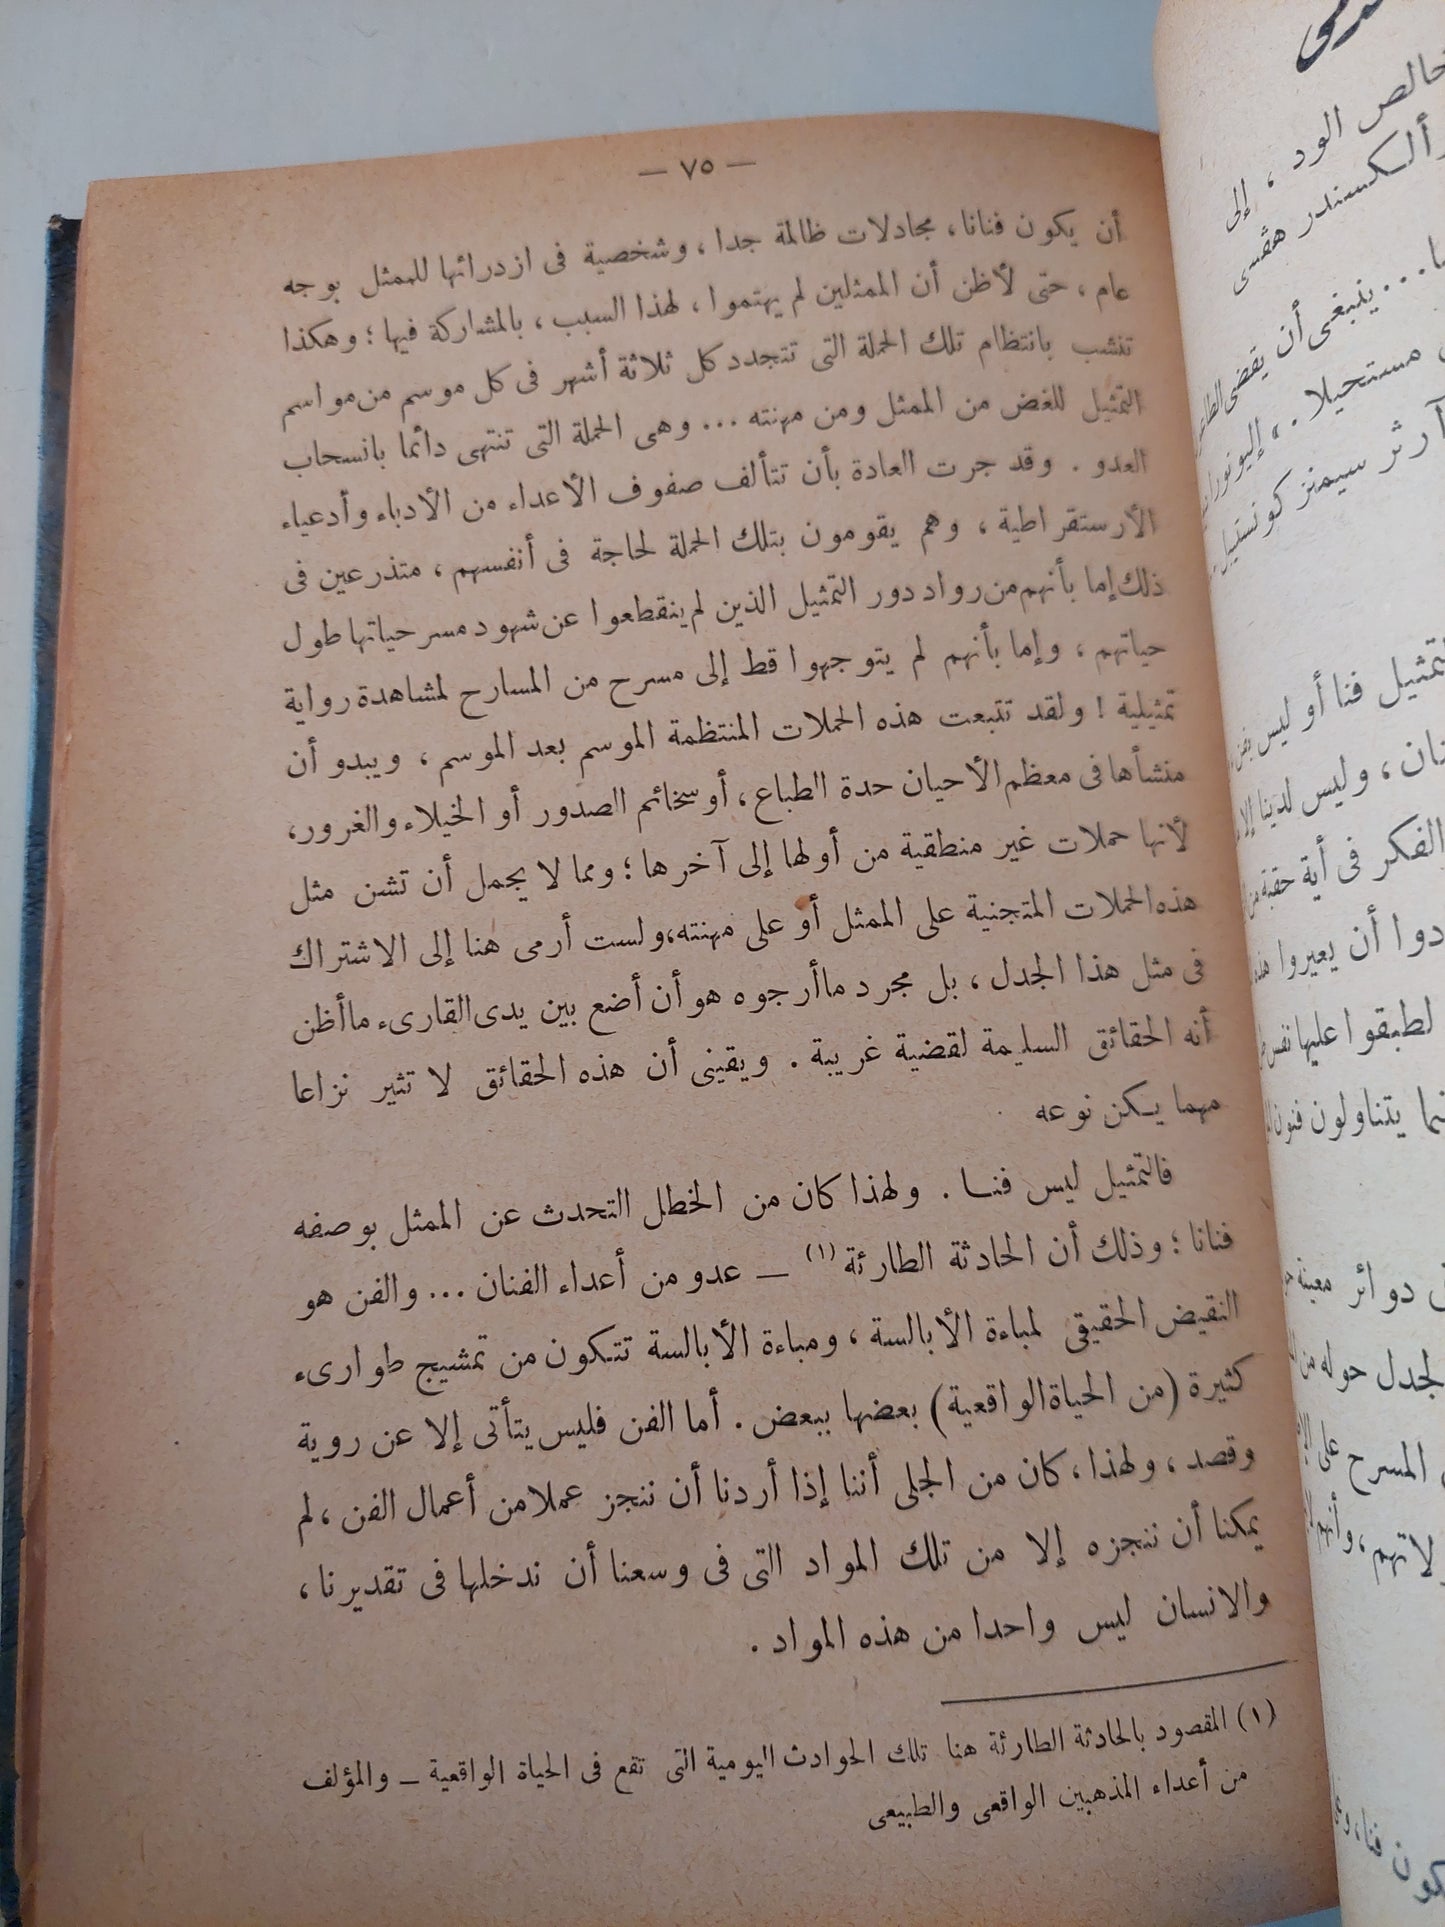 — ٧٥ —
أن يكون فنانا، مجادلات ظالمة جدا، وشخصية فى ازدرائها للممثل بوجه
عام، حتى لأظن أن الممثلين لم يهتموا، لهذا السبب، بالمشاركة فيها؛ وهكذا
تنشب بانتظام تلك الحملة التى تتجدد كل ثلاثة أشهر فى كل موسم من مواسم
التمثيل للغض من الممثل ومن مهنته ... وهى الحملة التى تنتهى دائما بانسحاب
العدو. وقد جرت العادة بأن تتألف صفوف الأعداء من الأدباء وأدعياء
الأرستقراطية، وهم يقومون بتلك الحملة لحاجة فى أنفسهم، متذرعين فى
ذلك إما بأنهم من رواد دور التمثيل الذين لم ينقطعوا عن شهود مسرحياتها طول
حياتهم، وإما بأنهم لم يتوجهوا قط إلى مسرح من المسارح لمشاهدة رواية
تمثيلية! ولقد تتبعت هذه الحملات المنتظمة الموسم بعد الموسم، ويبدو أن
منشأها فى معظم الأحيان حدة الطباع، أو سخائم الصدور أو الخيلاء والغرور،
لأنها حملات غير منطقية من أولها إلى آخرها؛ ومما لا يجمل أن تشن مثل
هذه الحملات المتجنية على الممثل أو على مهنته، ولست أرمى هنا إلى الاشتراك
فى مثل هذا الجدل، بل مجرد ما أرجوه هو أن أضع بين يدى القارىء ما أظن
أنه الحقائق السليمة لقضية غريبة. ويقينى أن هذه الحقائق لا تثير نزاعا
مهما يكن نوعه
فالتمثيل ليس فنا. ولهذا كان من الخطل التحدث عن الممثل بوصفه
فنانا؛ وذلك أن الحادثة الطارئة (١) — عدو من أعداء الفنان ... والفن هو
النقيض الحقيقى لمباءة الأبالسة، ومباءة الأبالسة تتكون من تمشيج طوارىء
كثيرة (من الحياة الواقعية) بعضها ببعض. أما الفن فليس يتأتى إلا عن روية
وقصد، ولهذا، كان من الجلى أننا إذا أردنا أن ننجز عملا من أعمال الفن، لم
يمكنا أن ننجزه إلا من تلك المواد التى فى وسعنا أن ندخلها فى تقديرنا،
والانسان ليس واحدا من هذه المواد.
(١) المقصود بالحادثة الطارئة هنا تلك الحوادث اليومية التى تقع فى الحياة الواقعية — والمؤلف
من أعداء المذهبين الواقعى والطبيعى
خالص الود، إلى
ألكسندر هڤسى
ينبغى أن يقضى
مستحيلا
آرثر سيمنز
فنا أو ليس
وليس لدينا
الفكر فى أية حقبة
أن يعيروا
لطبقوا عليها نفس
يتناولون فنون
دوائر معينة
حوله من
المسرح على